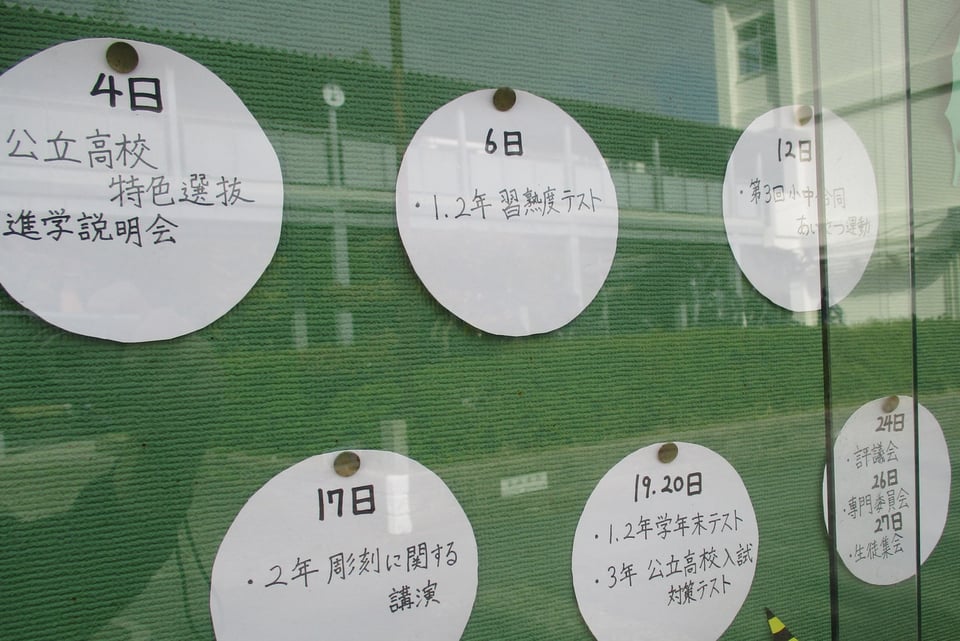 4日
公立高校
特色選抜
進学説明会
6日
・1.2年 習熟度テスト
12日
・第3回小中合同
あいさつ運動
17日
・2年 彫刻に関する
講演
19.20日
・1.2年学年末テスト
・3年 公立高校入試
対策テスト
24日
・評議会
26日
・専門委員会
27日
・生徒集会